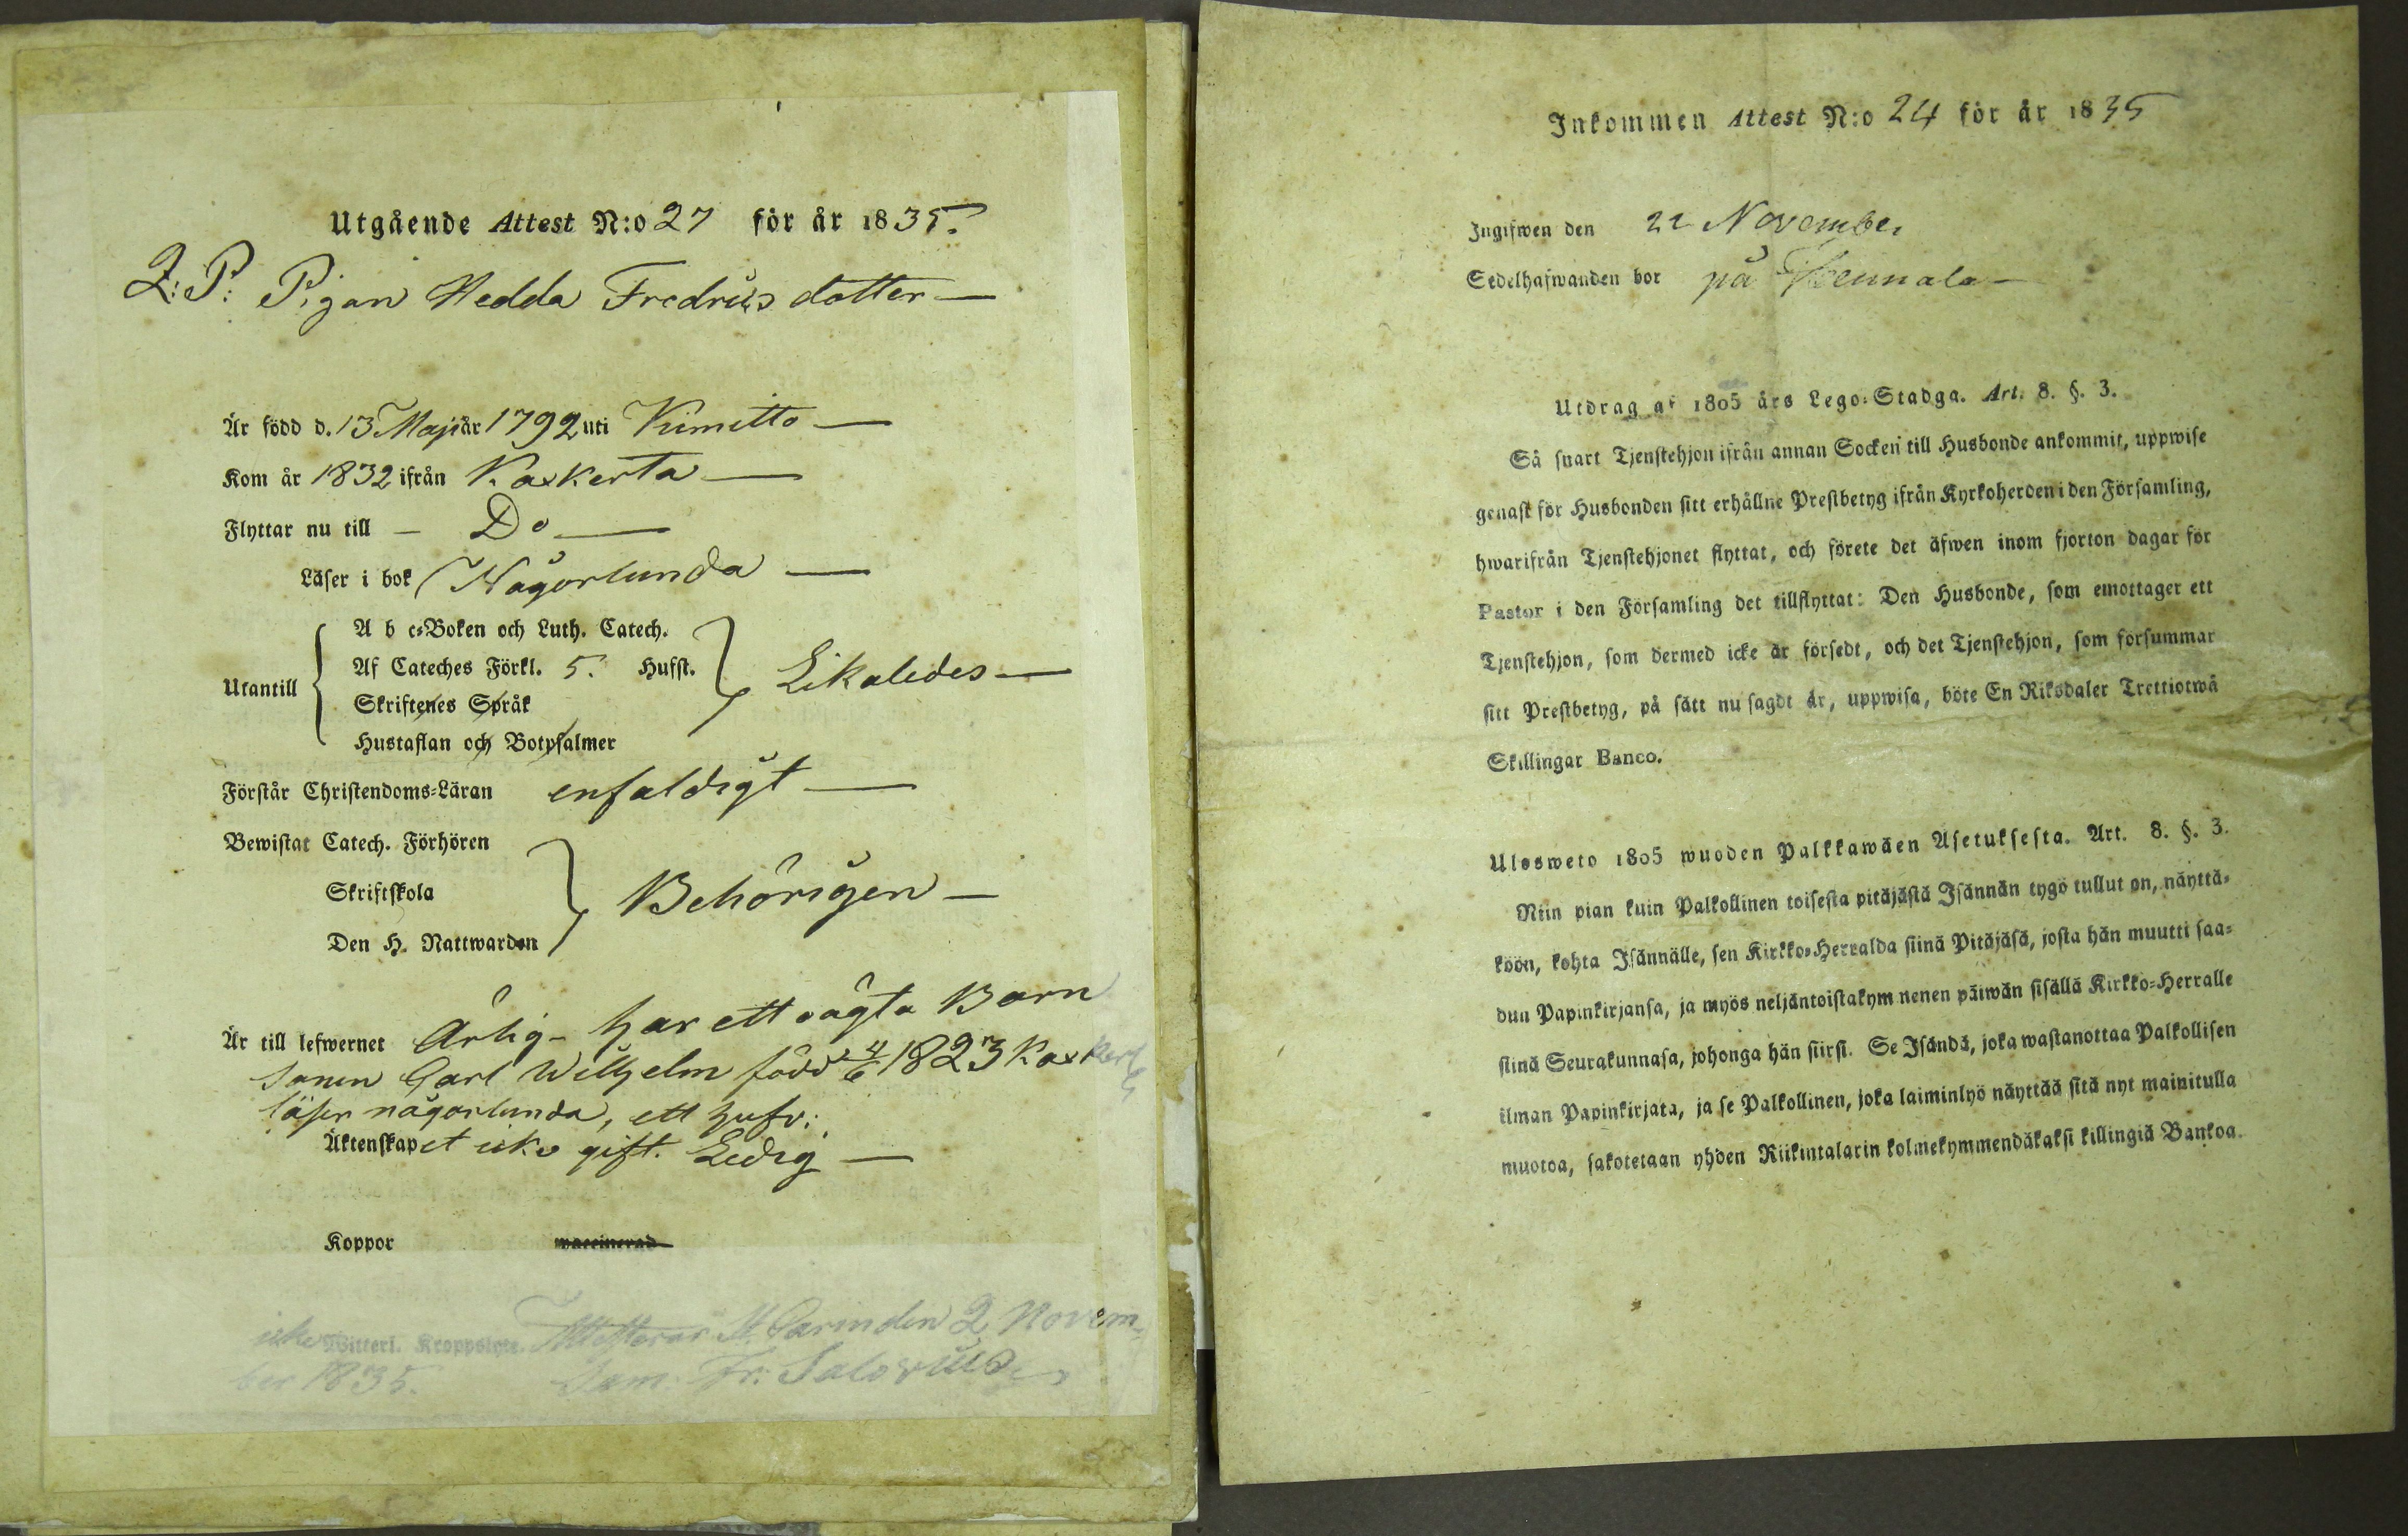 Utgående Attest N:o 27 för år 1835.
L: P: Pigan Hedda Fredriksdotter
Är född d. 13 Maji år 1792 uti Kimitto
Kom år 1832 ifrån Kaxkerta
Flyttar nu till Do
Läser i bok Någorlunda
A b c-Boken och Luth. Catech.
Af Cateches Förkl. 5. Hufst.
Utantill Likaledes
Skriftenes Språk
Hustaflan och Botpsalmer
Förstår Christendoms-Läran enfaldigt
Bewistat Catech. Förhören
Skriftskola Behörigen
Den H. Nattwarden
Är till lefwernet Ärlig - har ett oägta Barn
sonen Carl Wilhelm född 4/6 1823 Kaxkerta
läser någorlunda, ett hufv:
Äktenskapet icke gift. Ledig
Koppor waccinerad
icke Witterl. Kroppslyte. Attesterar St Karin den 2 Novem-
ber 1835. Fr: Salovius
Inkommen Attest N:o 24 för år 1835
Ingifwen den 22 November
Sedelhafwanden bor på
Utdrag af 1805 års Lego-Stadga. Art. 8. §. 3.
Så snart Tjenstehjon ifrån annan Socken till Husbonde ankommit, uppwise
genast för Husbonden sitt erhållne Prestbetyg ifrån Kyrkoherden i den Församling,
hwarifrån Tjenstehjonet flyttat, och förete det äfwen inom fjorton dagar för
Pastor i den Församling det tillflyttat: Den Husbonde, som emottager ett
Tjenstehjon, som dermed icke är försedt, och det Tjenstehjon, som försummar
sitt Prestbetyg, på sätt nu sagdt är, uppwisa, böte En Riksdaler Trettiotwå
Skillingar Banco.
Ulosweto 1805 wuoden Palkkawäen Asetuksesta. Art. 8. §. 3.
Niin pian kuin Palkollinen toisesta pitäjästä Isännän tygö tullut on, näyttä-
köön, kohta Isännälle, sen Kirkko-Herralda siinä Pitäjäsä, josta hän muutti saa-
dun Papinkirjansa, ja myös neljäntoistakymnenen päiwän sisällä Kirkko-Herralle
siinä Seurakunnasa, johonga hän siirsi. Se Isändä, joka wastanottaa Palkollisen
ilman Papinkirjata, ja se Palkollinen, joka laiminlyö näyttää sitä nyt mainitulla
muotoa, sakotetaan yhden Riikintalarin kolmekymmendäkaksi killingiä Bankoa.